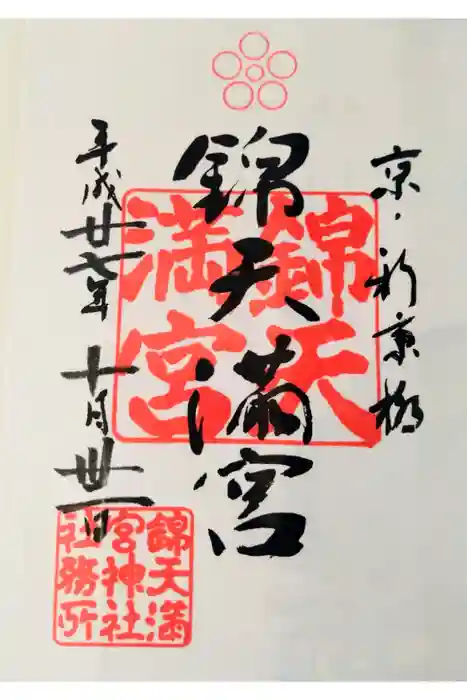 京・新京極
錦天満宮
錦天
満宮
平成廿七年 十月丗一日
錦天満
宮神社
社務所